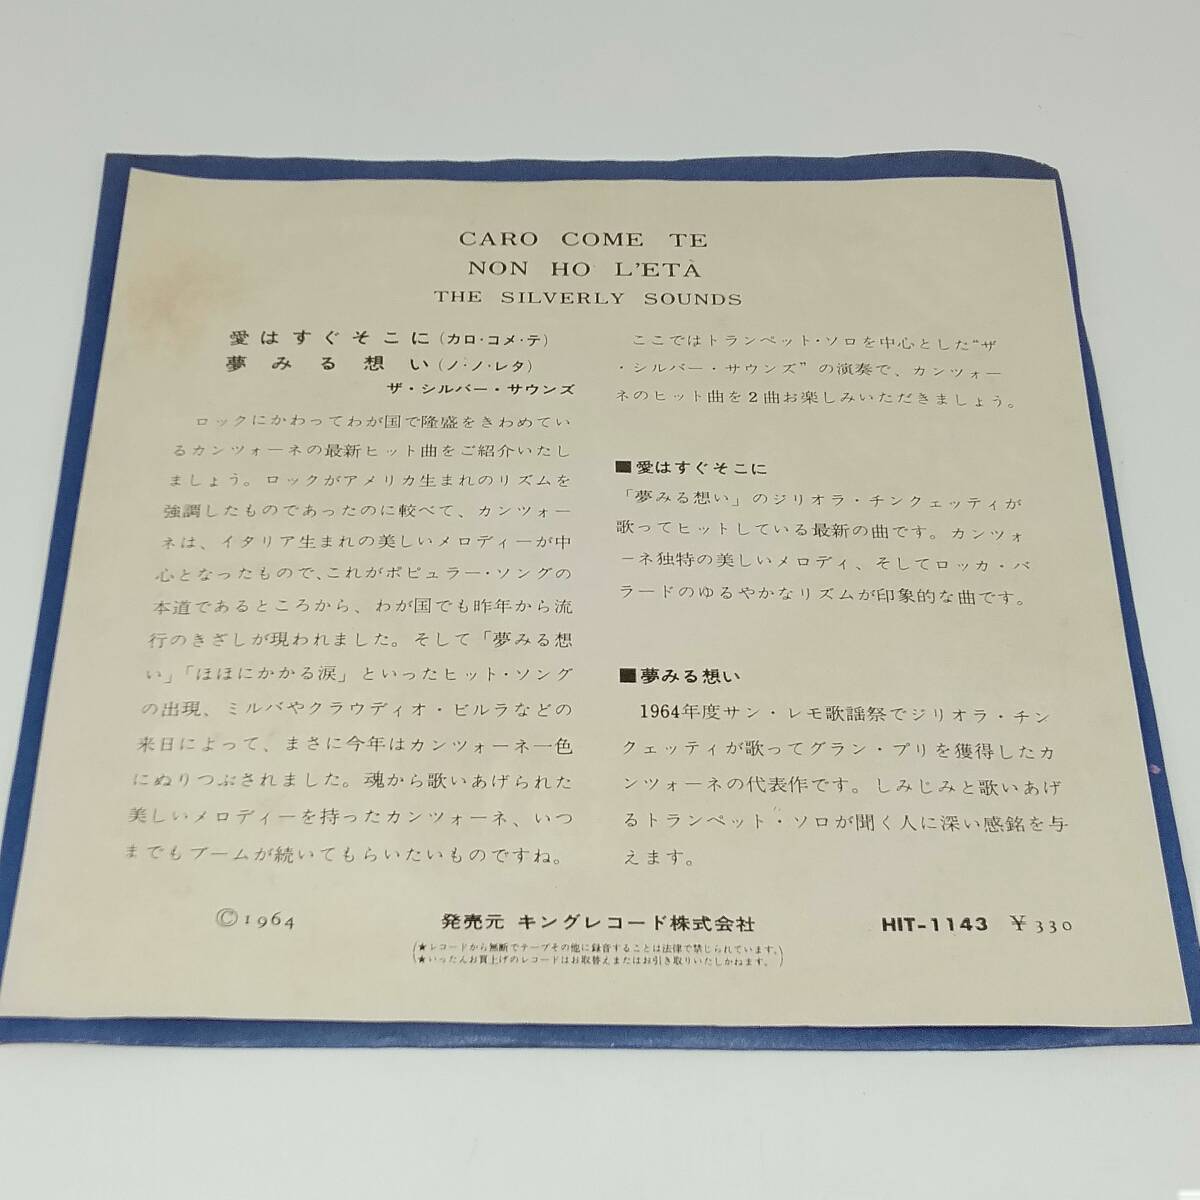 CARO COME TE
NON HO L'ETÀ
THE SILVERLY SOUNDS
愛はすぐそこに(カロ・コメ・テ)
夢みる想い(ノ・ノ・レタ)
ザ・シルバー・サウンズ
ロックにかわってわが国で隆盛をきわめてい
るカンツォーネの最新ヒット曲をご紹介いたし
ましょう。ロックがアメリカ生まれのリズムを
強調したものであったのに較べて、カンツォー
ネは、イタリア生まれの美しいメロディーが中
心となったもので、これがポピュラー・ソングの
本道であるところから、わが国でも昨年から流
行のきざしが現われました。そして「夢みる想
い」「ほほにかかる涙」といったヒット・ソング
の出現、ミルバやクラウディオ・ビルラなどの
来日によって、まさに今年はカンツォーネ一色
にぬりつぶされました。魂から歌いあげられた
美しいメロディーを持ったカンツォーネ、いつ
までもブームが続いてもらいたいものですね。
ここではトランペット・ソロを中心とした“ザ
・シルバー・サウンズ”の演奏で、カンツォー
ネのヒット曲を2曲お楽しみいただきましょう。
■愛はすぐそこに
「夢みる想い」のジリオラ・チンクェッティが
歌ってヒットしている最新の曲です。カンツォ
ーネ独特の美しいメロディ、そしてロッカ・バ
ラードのゆるやかなリズムが印象的な曲です。
■夢みる想い
1964年度サン・レモ歌謡祭でジリオラ・チン
クェッティが歌ってグラン・プリを獲得したカ
ンツォーネの代表作です。しみじみと歌いあげ
るトランペット・ソロが聞く人に深い感銘を与
えます。
©1964 発売元 キングレコード株式会社 HIT-1143 ¥330
(★レコードから無断でテープその他に録音することは法律で禁じられています。)
(★いったんお買上げのレコードはお取替えまたはお引き取りいたしかねます。)